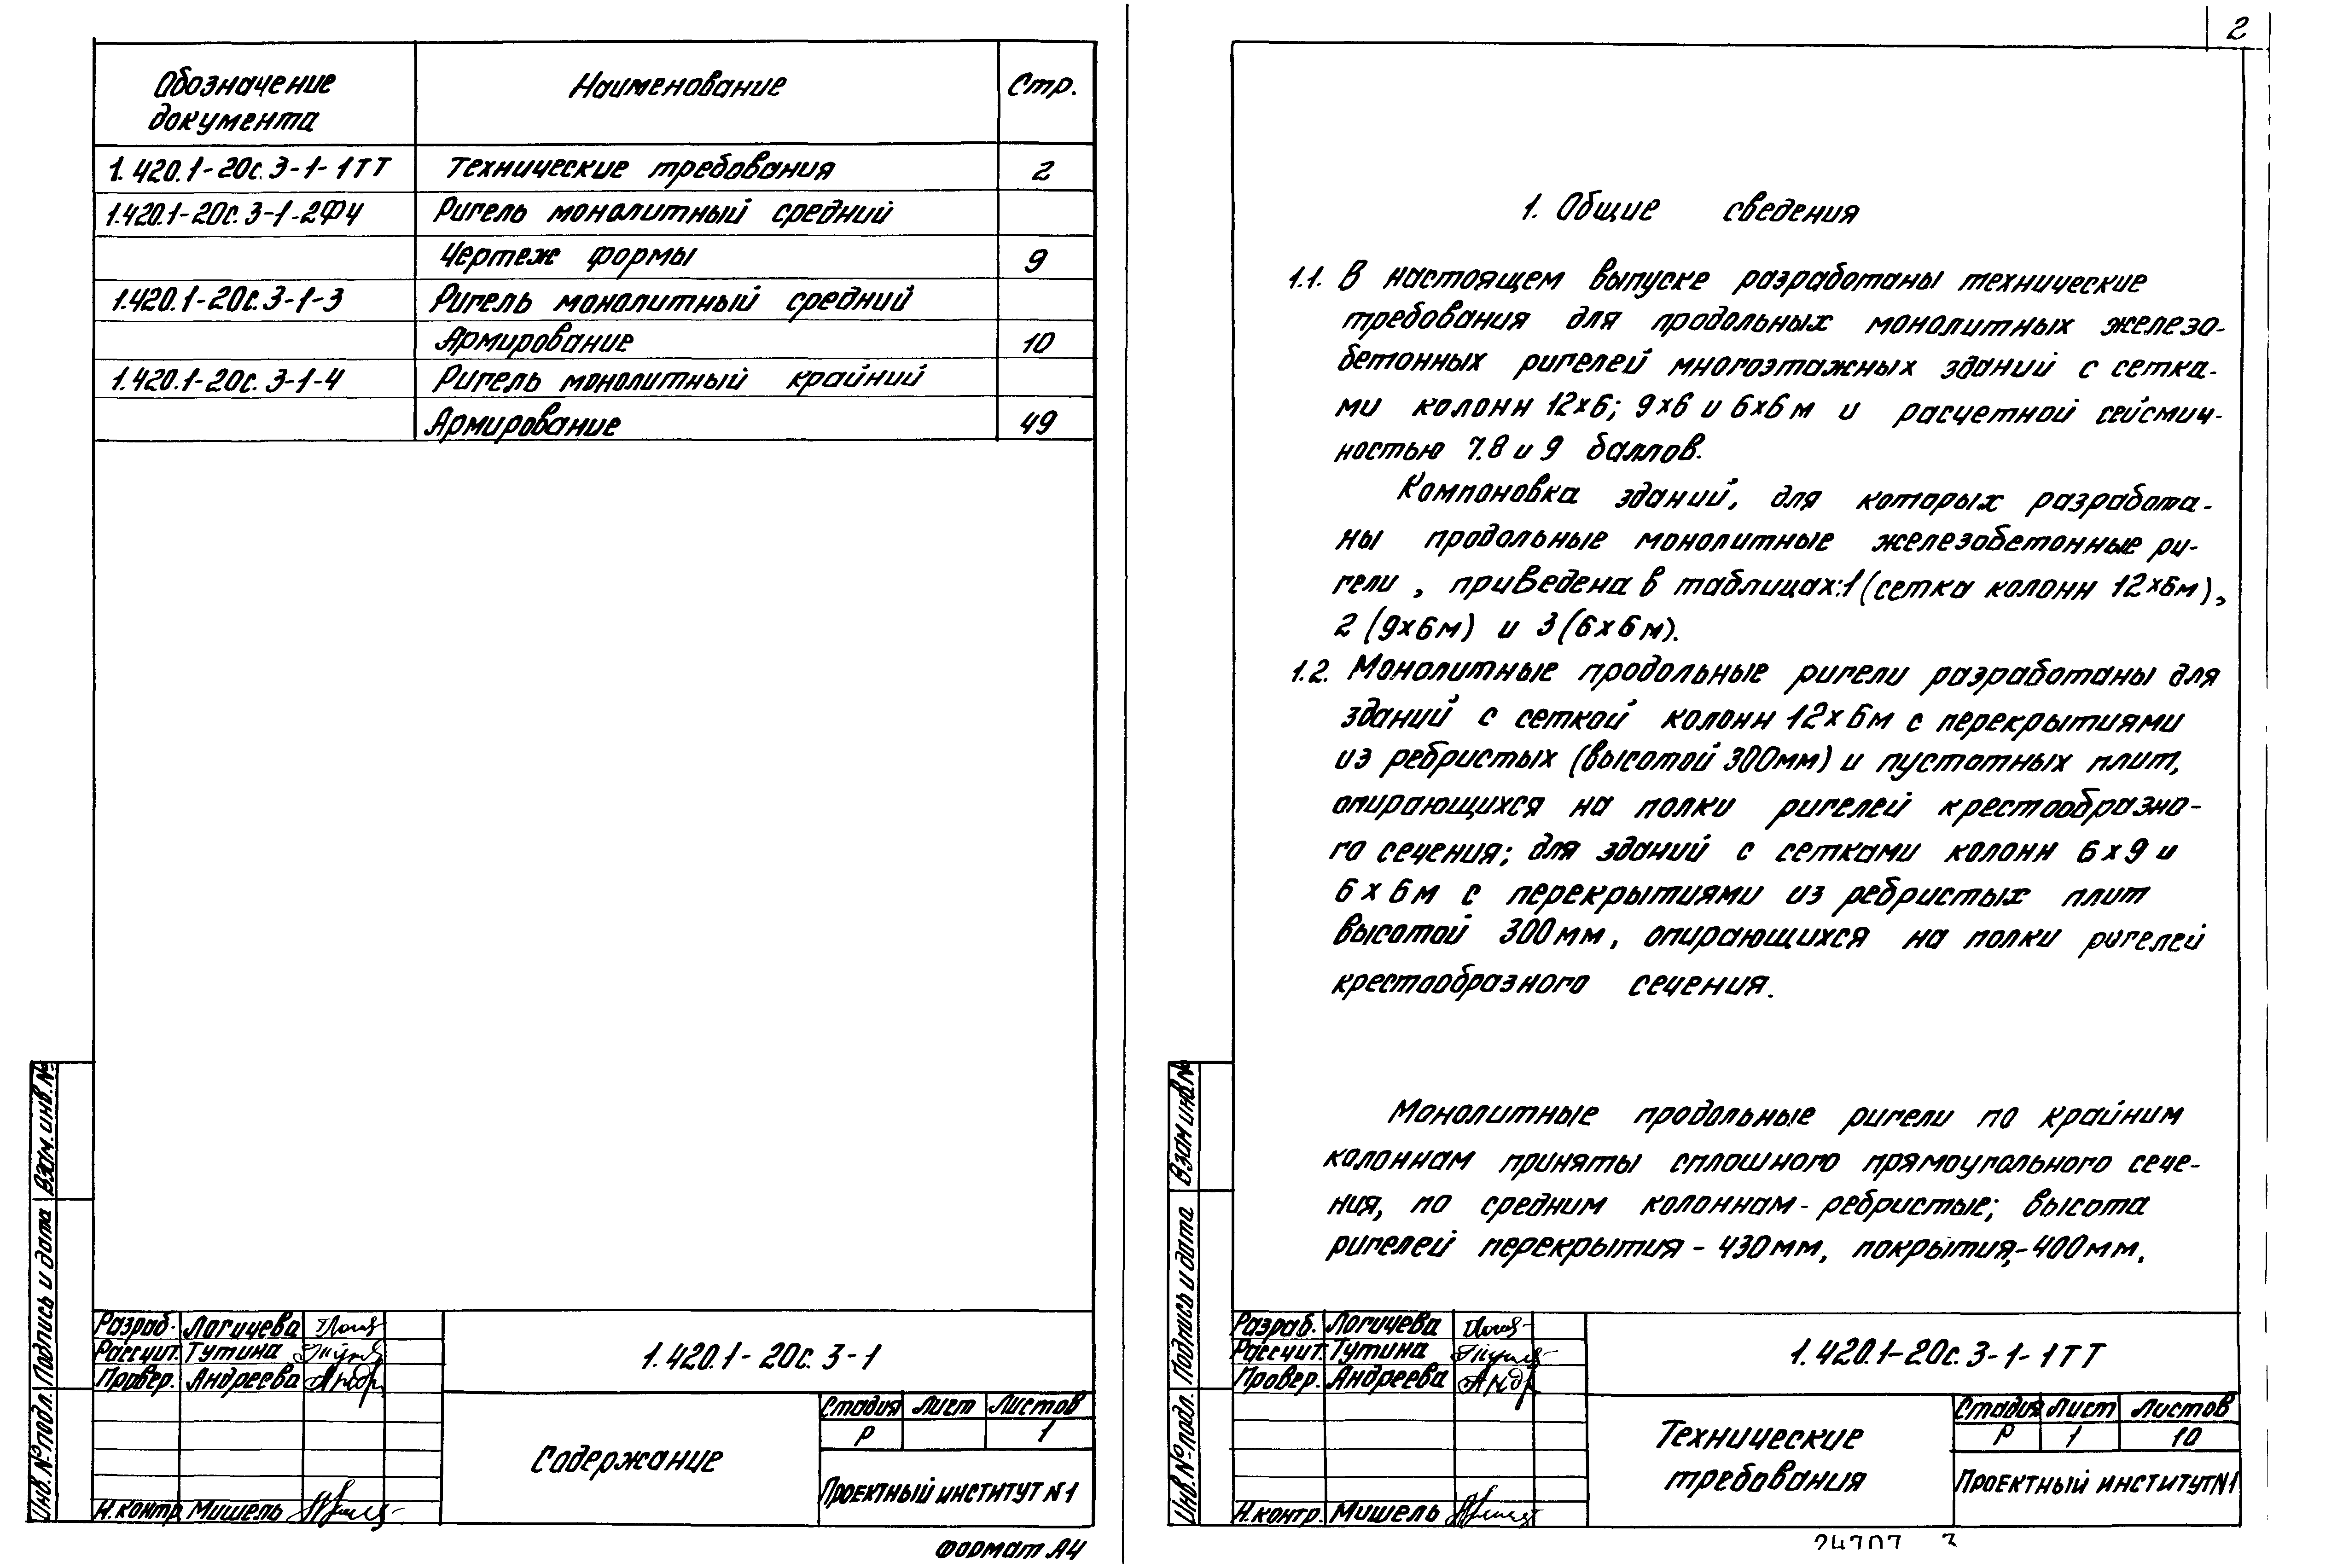 Обозначение документа Наименование Стр.
1.420.1-20с.3-1-1ТТ Технические требования 2
1.420.1-20с.3-1-2ФЧ Ригель монолитный средний
Чертеж формы 9
1.420.1-20с.3-1-3 Ригель монолитный средний
Армирование 10
1.420.1-20с.3-1-4 Ригель монолитный крайний
Армирование 49
Инв.№подл. Подпись и дата Взам.инв.№
Разраб. Логичева
Рассчит. Тутина
Провер. Андреева
Н.контр. Мишель
1.420.1-20с.3-1
Содержание
Стадия Лист Листов
Р 1
Проектный институт №1
Формат А4
2
1. Общие сведения
1.1. В настоящем выпуске разработаны технические
требования для продольных монолитных железо-
бетонных ригелей многоэтажных зданий с сетка-
ми колонн 12×6; 9×6 и 6×6м и расчетной сейсмич-
ностью 7.8 и 9 баллов.
Компоновка зданий, для которых разработа-
ны продольные монолитные железобетонные ри-
гели, приведена в таблицах:1(сетка колонн 12×6м),
2 (9×6м) и 3(6×6м).
1.2. Монолитные продольные ригели разработаны для
зданий с сеткой колонн 12×6м с перекрытиями
из ребристых (высотой 300мм) и пустотных плит,
опирающихся на полки ригелей крестообразно-
го сечения; для зданий с сетками колонн 6×9 и
6×6м с перекрытиями из ребристых плит
высотой 300мм, опирающихся на полки ригелей
крестообразного сечения.
Монолитные продольные ригели по крайним
колоннам приняты сплошного прямоугольного сече-
ния, по средним колоннам-ребристые; высота
ригелей перекрытия-430мм, покрытия,-400мм.
Инв.№подл. Подпись и дата Взам инв.№
Разраб. Логичева
Рассчит. Тутина
Провер. Андреева
Н.контр. Мишель
1.420.1-20с.3-1-1ТТ
Технические
требования
Стадия Лист Листов
Р 1 10
Проектный институт№1
24707 3